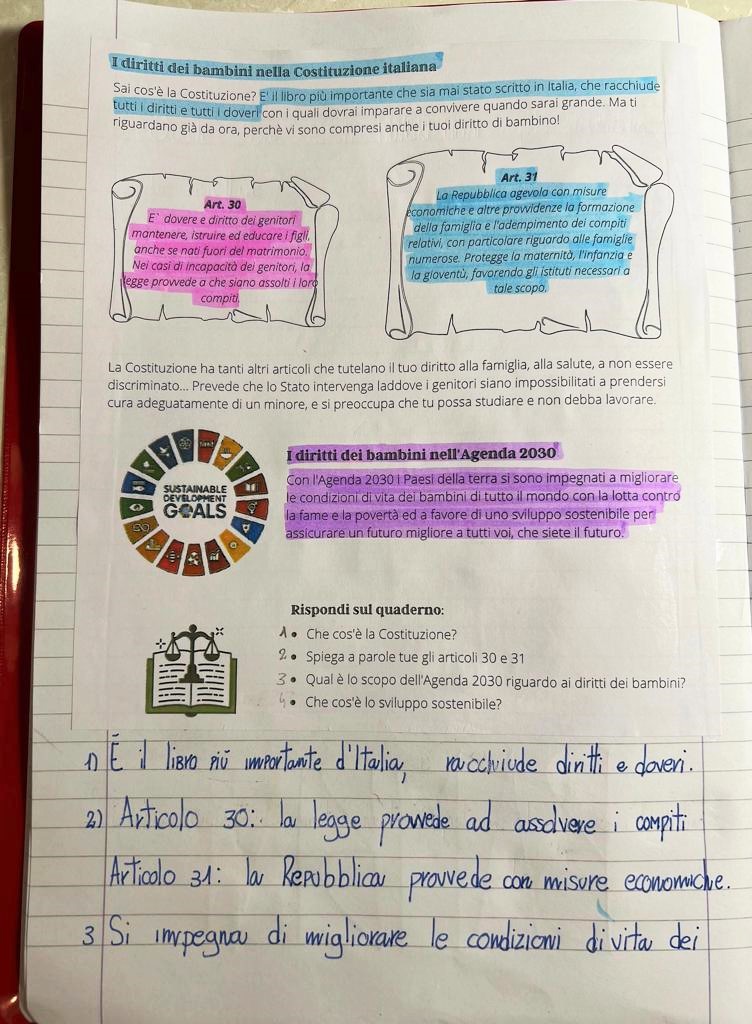 I diritti dei bambini nella Costituzione italiana
Sai cos'è la Costituzione? E' il libro più importante che sia mai stato scritto in Italia, che racchiude
tutti i diritti e tutti i doveri con i quali dovrai imparare a convivere quando sarai grande. Ma ti
riguardano già da ora, perchè vi sono compresi anche i tuoi diritto di bambino!
Art. 30
E` dovere e diritto dei genitori
mantenere, istruire ed educare i figli,
anche se nati fuori del matrimonio.
Nei casi di incapacità dei genitori, la
legge provvede a che siano assolti i loro
compiti.
Art. 31
La Repubblica agevola con misure
economiche e altre provvidenze la formazione
della famiglia e l'adempimento dei compiti
relativi, con particolare riguardo alle famiglie
numerose. Protegge la maternità, l'infanzia e
la gioventù, favorendo gli istituti necessari a
tale scopo.
La Costituzione ha tanti altri articoli che tutelano il tuo diritto alla famiglia, alla salute, a non essere
discriminato... Prevede che lo Stato intervenga laddove i genitori siano impossibilitati a prendersi
cura adeguatamente di un minore, e si preoccupa che tu possa studiare e non debba lavorare.
SUSTAINABLE
DEVELOPMENT
GOALS
I diritti dei bambini nell'Agenda 2030
Con l'Agenda 2030 i Paesi della terra si sono impegnati a migliorare
le condizioni di vita dei bambini di tutto il mondo con la lotta contro
la fame e la povertà ed a favore di uno sviluppo sostenibile per
assicurare un futuro migliore a tutti voi, che siete il futuro.
Rispondi sul quaderno:
1 • Che cos'è la Costituzione?
2 • Spiega a parole tue gli articoli 30 e 31
3 • Qual è lo scopo dell'Agenda 2030 riguardo ai diritti dei bambini?
4 • Che cos'è lo sviluppo sostenibile?
1) È il libro più importante d'Italia, racchiude diritti e doveri.
2) Articolo 30: la legge provvede ad assolvere i compiti
Articolo 31: la Repubblica provvede con misure economiche.
3 Si impegna di migliorare le condizioni di vita dei